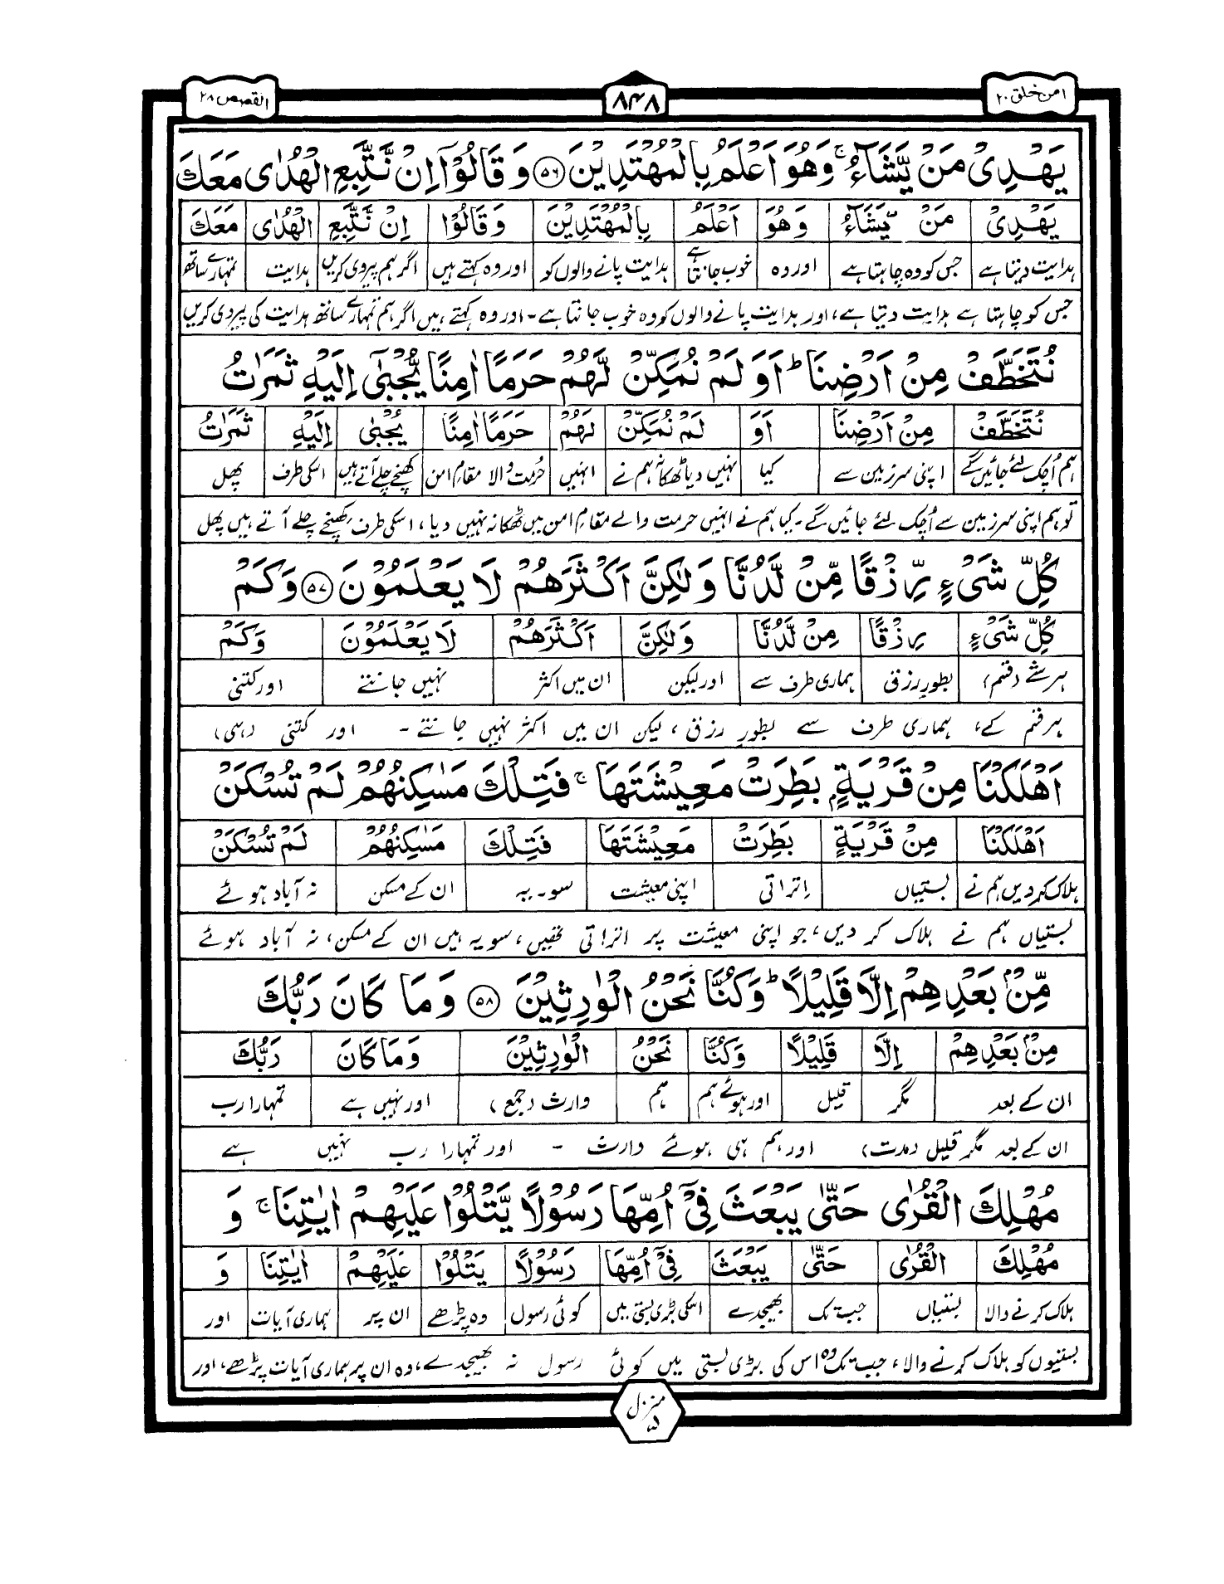 امن خلق ۲۰
۸۴۸
القصص ۲۸
يَهْدِىْ مَنْ يَّشَآءُ ۚ وَهُوَ اَعْلَمُ بِالْمُهْتَدِيْنَ ﴿۵۶﴾ وَ قَالُوْٓا اِنْ نَّتَّبِعِ الْهُدٰى مَعَكَ
يَهْدِىْ مَنْ يَّشَآءُ وَهُوَ اَعْلَمُ بِالْمُهْتَدِيْنَ وَقَالُوْا اِنْ نَّتَّبِعِ الْهُدٰى مَعَكَ
ہدایت دیتا ہے جس کو وہ چاہتا ہے اور وہ خوب جانتا ہے ہدایت پانے والوں کو اور وہ کہتے ہیں اگر ہم پیروی کریں ہدایت تمہارے ساتھ
جس کو چاہتا ہے ہدایت دیتا ہے، اور ہدایت پانے والوں کو وہ خوب جانتا ہے۔ اور وہ کہتے ہیں اگر ہم تمہارے ساتھ ہدایت کی پیروی کریں
نُتَخَطَّفْ مِنْ اَرْضِنَا ؕ اَوَ لَمْ نُمَكِّنْ لَّهُمْ حَرَمًا اٰمِنًا يُّجْبٰٓى اِلَيْهِ ثَمَرٰتُ
نُتَخَطَّفْ مِنْ اَرْضِنَا اَوَ لَمْ نُمَكِّنْ لَهُمْ حَرَمًا اٰمِنًا يُجْبٰى اِلَيْهِ ثَمَرٰتُ
ہم اُچک لئے جائیں گے اپنی سرزمین سے کیا نہیں دیا ٹھکانہ ہم نے انہیں حرمت والا مقامِ امن کھنچے چلے آتے ہیں اسکی طرف پھل
تو ہم اپنی سرزمین سے اُچک لئے جائیں گے۔ کیا ہم نے انہیں حرمت والے مقامِ امن میں ٹھکانہ نہیں دیا، اسکی طرف کھنچے چلے آتے ہیں پھل
كُلِّ شَىْءٍ رِّزْقًا مِّنْ لَّدُنَّا وَلٰكِنَّ اَكْثَرَهُمْ لَا يَعْلَمُوْنَ ﴿۵۷﴾ وَكَمْ
كُلِّ شَىْءٍ رِزْقًا مِنْ لَّدُنَّا وَلٰكِنَّ اَكْثَرَهُمْ لَا يَعْلَمُوْنَ وَكَمْ
ہر شے (قسم) بطور رزق ہماری طرف سے اور لیکن ان میں اکثر نہیں جانتے اور کتنی
ہر قسم کے، ہماری طرف سے بطور رزق، لیکن ان میں اکثر نہیں جانتے ۔ اور کتنی (ہی)
اَهْلَكْنَا مِنْ قَرْيَةٍۭ بَطِرَتْ مَعِيْشَتَهَا ۚ فَتِلْكَ مَسٰكِنُهُمْ لَمْ تُسْكَنْ
اَهْلَكْنَا مِنْ قَرْيَةٍ بَطِرَتْ مَعِيْشَتَهَا فَتِلْكَ مَسٰكِنُهُمْ لَمْ تُسْكَنْ
ہلاک کردیں ہم نے بستیاں اتراتی اپنی معیشت سو۔ یہ ان کے مسکن نہ آباد ہوئے
بستیاں ہم نے ہلاک کر دیں، جو اپنی معیشت پر اتراتی تھیں، سو یہ ہیں ان کے مسکن، نہ آباد ہوئے
مِّنْۢ بَعْدِهِمْ اِلَّا قَلِيْلًا ؕ وَكُنَّا نَحْنُ الْوٰرِثِيْنَ ﴿۵۸﴾ وَمَا كَانَ رَبُّكَ
مِنْۢ بَعْدِهِمْ اِلَّا قَلِيْلًا وَكُنَّا نَحْنُ الْوٰرِثِيْنَ وَمَا كَانَ رَبُّكَ
ان کے بعد مگر قلیل اور ہوئے ہم ہم وارث (جمع) اور نہیں ہے تمہارا رب
ان کے بعد مگر قلیل (مدت) اور ہم ہی ہوئے وارث ۔ اور تمہارا رب نہیں ہے
مُهْلِكَ الْقُرٰى حَتّٰى يَبْعَثَ فِىْٓ اُمِّهَا رَسُوْلًا يَّتْلُوْا عَلَيْهِمْ اٰيٰتِنَا ۚ وَ
مُهْلِكَ الْقُرٰى حَتّٰى يَبْعَثَ فِىْٓ اُمِّهَا رَسُوْلًا يَتْلُوْا عَلَيْهِمْ اٰيٰتِنَا وَ
ہلاک کرنے والا بستیاں جب تک بھیجدے اسکی بڑی بستی میں کوئی رسول وہ پڑھے ان پر ہماری آیات اور
بستیوں کو ہلاک کرنے والا، جب تک وہ اس کی بڑی بستی میں کوئی رسول نہ بھیجدے، وہ ان پر ہماری آیات پڑھے، اور
منزل ۵